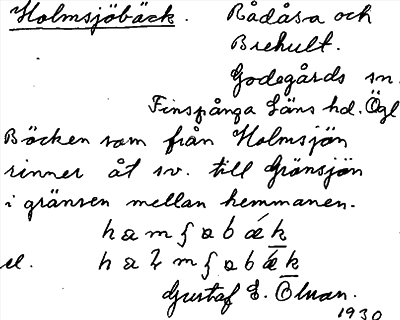 Holmsjöbäck. Rådåsa och
Brehult.
Godegårds sn.
Finspånga Läns hd. Ögl
Böcken som från Holmsjön
rinner åt sv. till Grönsjön
i gränsen mellan hemmanen.
el.
Gustaf E. Öhman.
1930